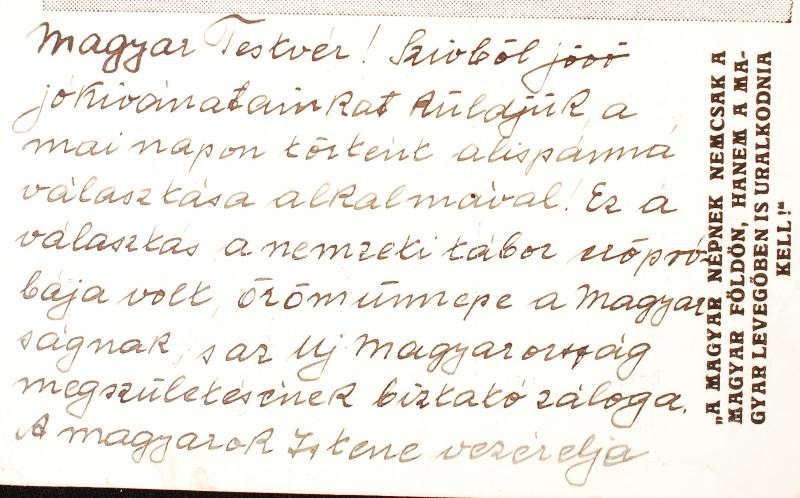 Magyar Testvér! Szivből jövő
jókivánatainkat küldjük a
mai napon történt alispánná
választása alkalmával! Ez a
választás a nemzeti tábor erőpró-
bája volt, örömünnepe a Magyar
ságnak, s az Uj Magyarország
megszületésének biztató záloga.
A magyarok Istene vezérelje
„A MAGYAR NÉPNEK NEMCSAK A
MAGYAR FÖLDÖN, HANEM A MA-
GYAR LEVEGŐBEN IS URALKODNIA
KELL!"